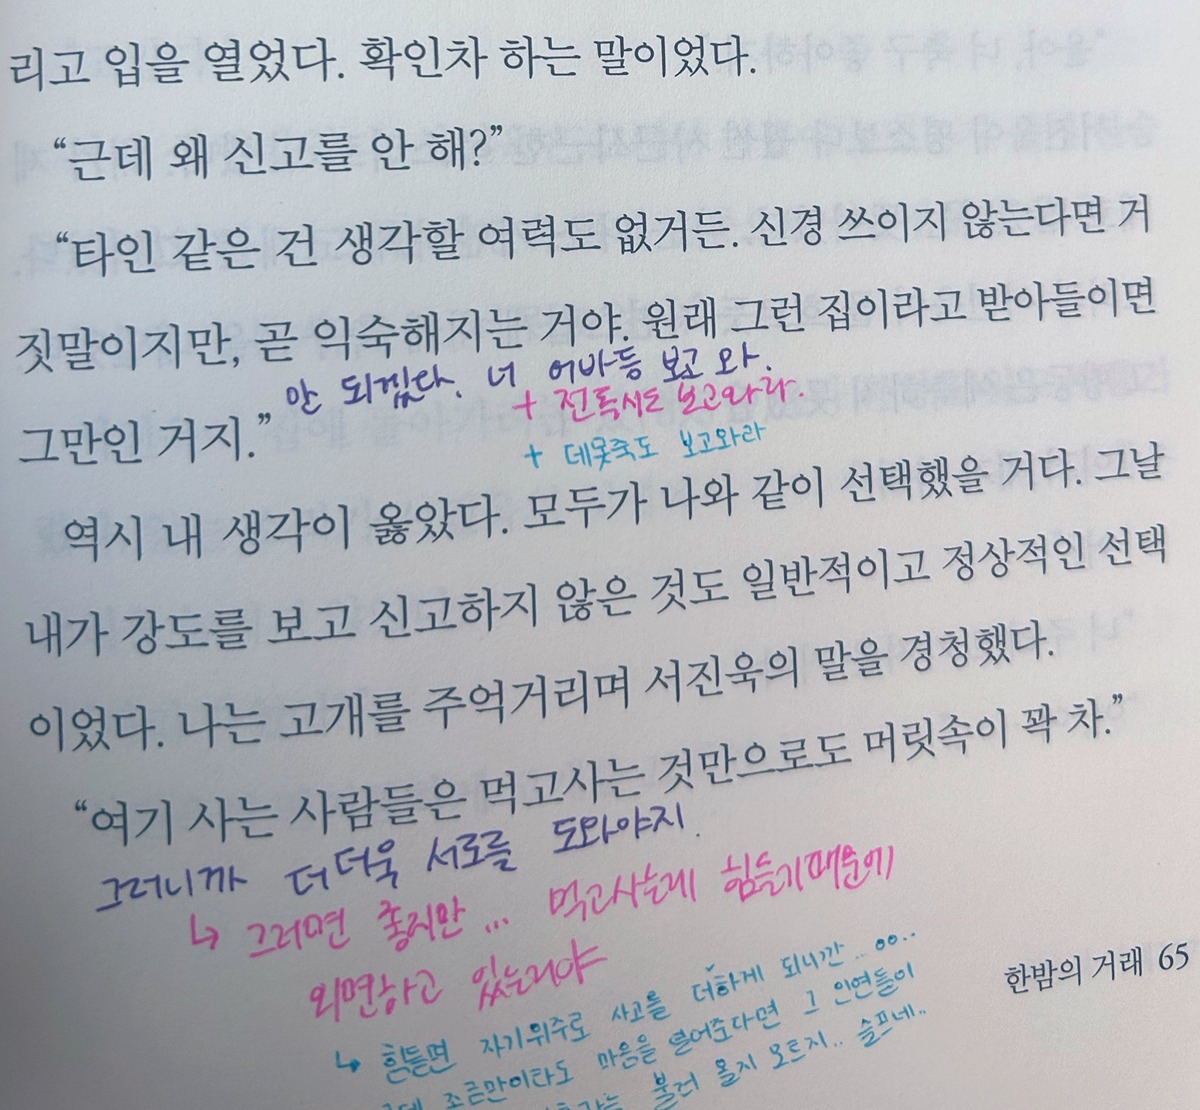 리고 입을 열었다. 확인차 하는 말이었다.
“근데 왜 신고를 안 해?”
“타인 같은 건 생각할 여력도 없거든. 신경 쓰이지 않는다면 거
짓말이지만, 곧 익숙해지는 거야. 원래 그런 집이라고 받아들이면
안 되겠다. 너 어바등 보고 와.
+ 전독시도 보고와라.
그만인 거지.”
+ 데못죽도 보고와라
역시 내 생각이 옳았다. 모두가 나와 같이 선택했을 거다. 그날
내가 강도를 보고 신고하지 않은 것도 일반적이고 정상적인 선택
이었다. 나는 고개를 주억거리며 서진욱의 말을 경청했다.
“여기 사는 사람들은 먹고사는 것만으로도 머릿속이 꽉 차.”
그러니까 더더욱 서로를 도와야지.
↳ 그러면 좋지만... 먹고사는게 힘들기때문에
외면하고 있는거야
↳ 힘들면 자기위주로 사고를 더하게 되니깐..ㅇㅇ..
근데 조금만이라도 마음을 열어준다면 그 인연들이
불러 올지 모르지.. 슬프네..
한밤의 거래 65